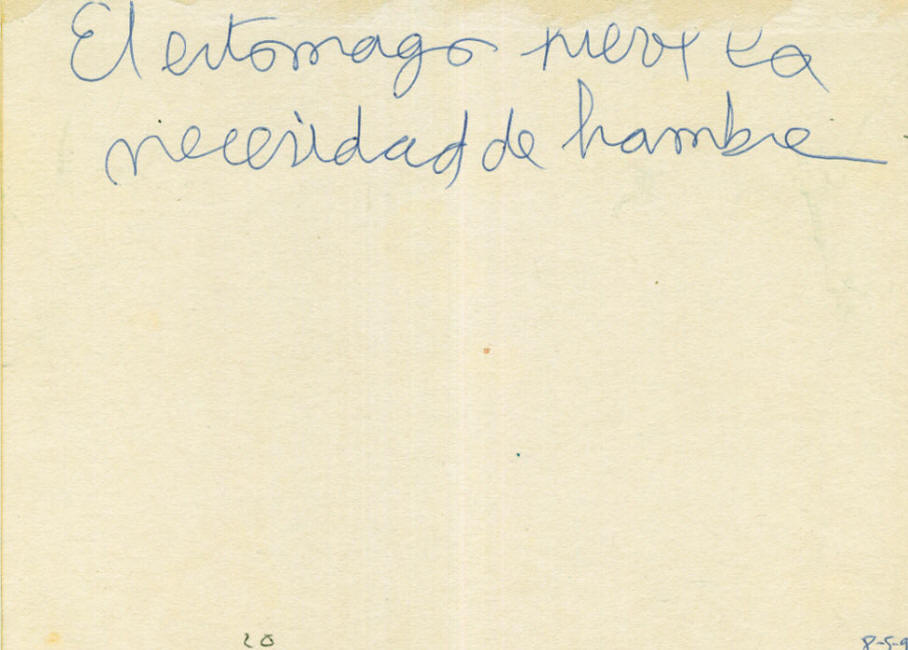 El estomago tiene la
necesidad de hambre
20
8-5-9